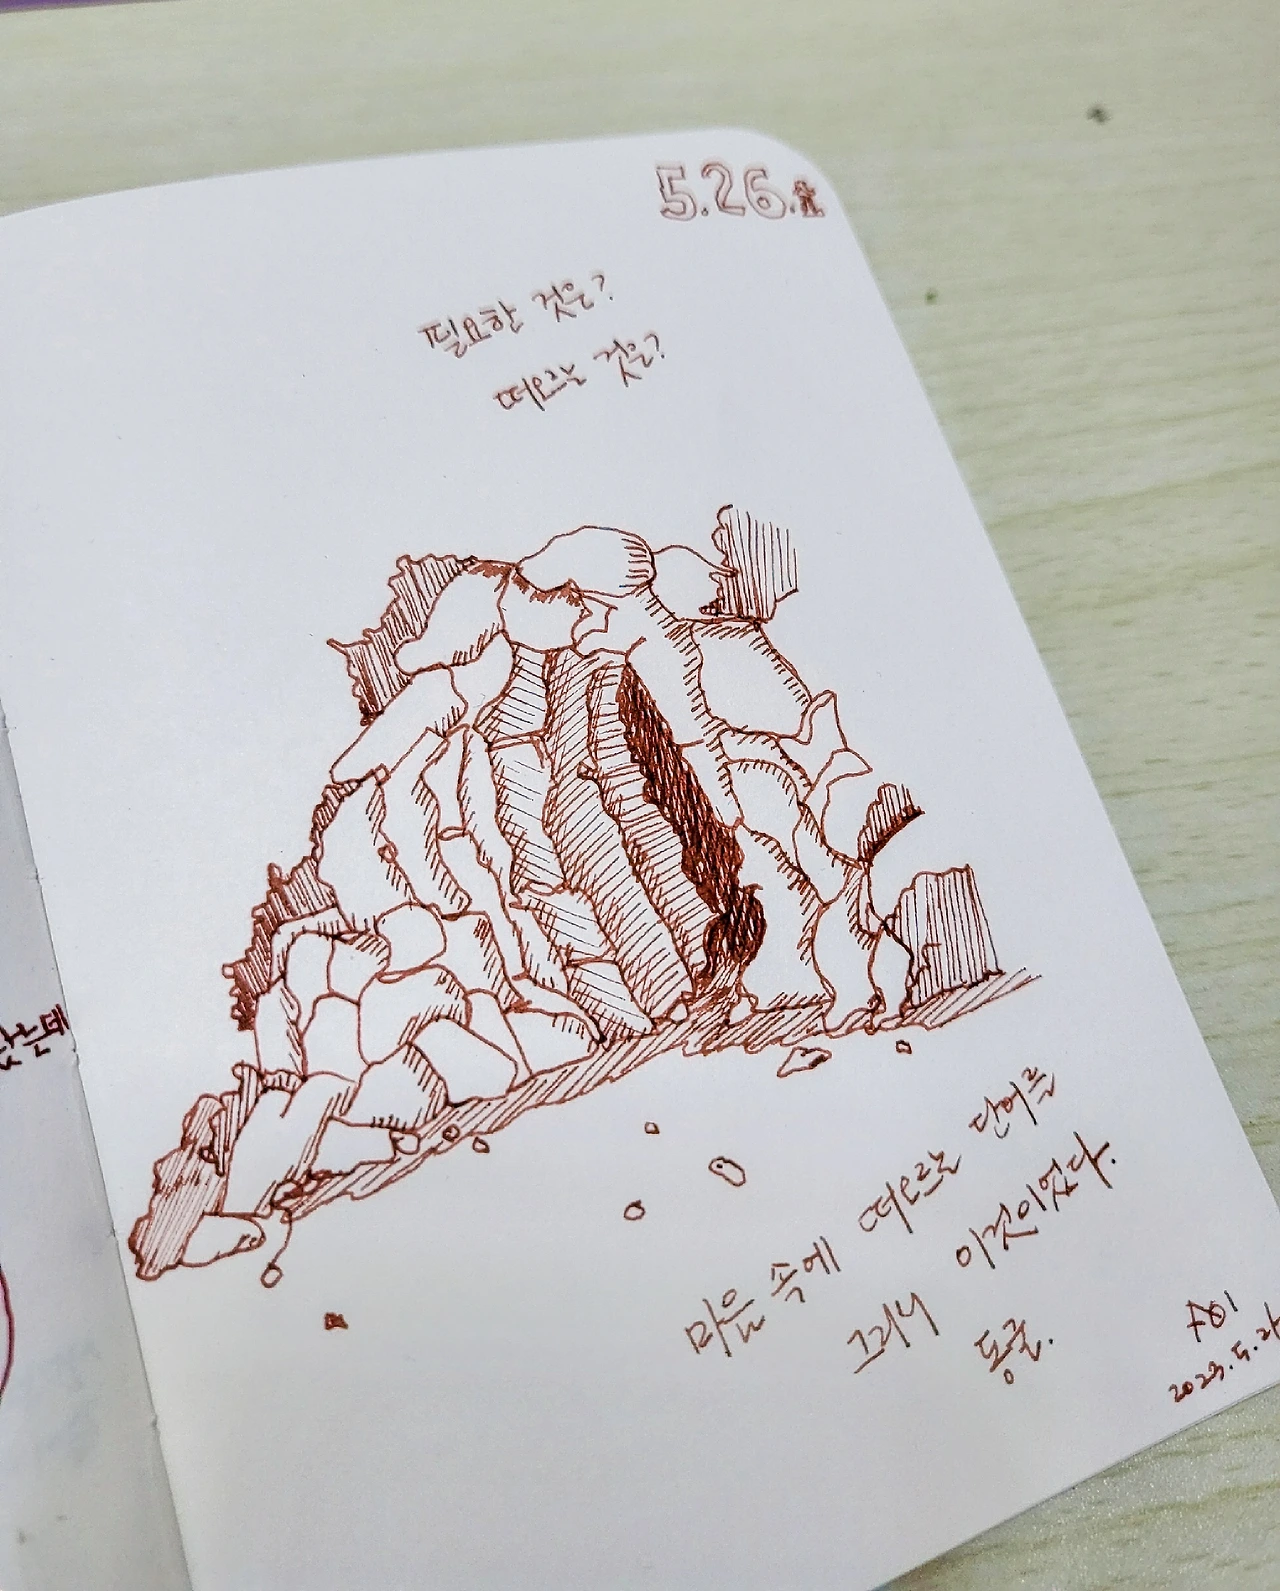 5.26.金
필요한 것은?
떠오르는 것은?
았는데
마음 속에 떠오르는 단어를
그리니 이것이었다.
동굴.
2023.5.2